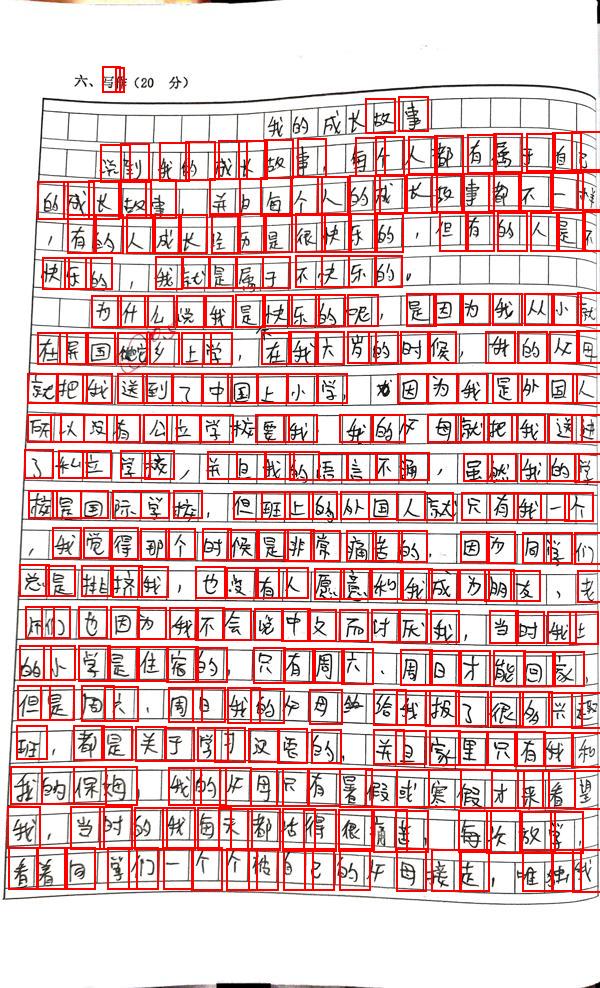 六、写作(20 分)
我的成长故事
说到我的成长故事,每个人都有属于自己
的成长故事,并且每个人的成长故事都不一样
,有的人成长经历是很快乐的,但有的人是不
快乐的,我就是属于不快乐的。
为什么说我是快乐的呢,是因为我从小就
在异国他乡上学,在我六岁的时候,我的父母
就把我送到了中国上小学,因为我是外国人
所以没有公立学校要我,我的父母就把我送进
了私立学校,并且我的语言不通,虽然我的学
校是国际学校,但班上的外国人就只有我一个
,我觉得那个时候是非常痛苦的,因为同学们
总是排挤我,也没有人愿意和我成为朋友,老
师们也因为我不会说中文而讨厌我,当时我上
的小学是住宿的,只有周六、周日才能回家,
但是周六、周日我的父母给我报了很多兴趣
班,都是关于学习汉语的,并且家里只有我和
我的保姆,我的父母只有暑假或寒假才来看望
我,当时的我每天都过得很痛苦,每次放学,
看着同学们一个个被自己的父母接走,唯独我